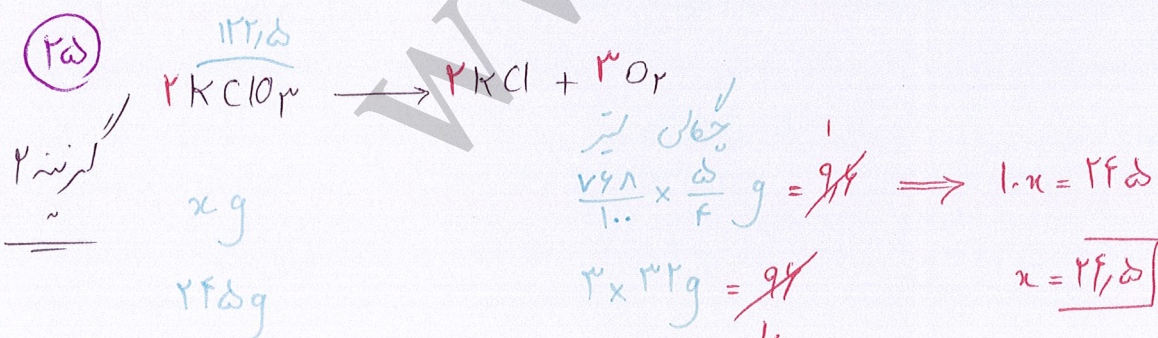 ۲۵
۱۲۲٫۵
۲KClO۳ → ۲KCl + ۳O۲
گزینه ۲
چگالی لیتر
x g
۷۶۸/۱۰۰ × ۵/۴ g = ۹٫۶ ۱ ⟹ ۱۰x = ۲۴۵
۲۴۵g
۳×۳۲g = ۹۶ ۱۰
x = ۲۴٫۵
W